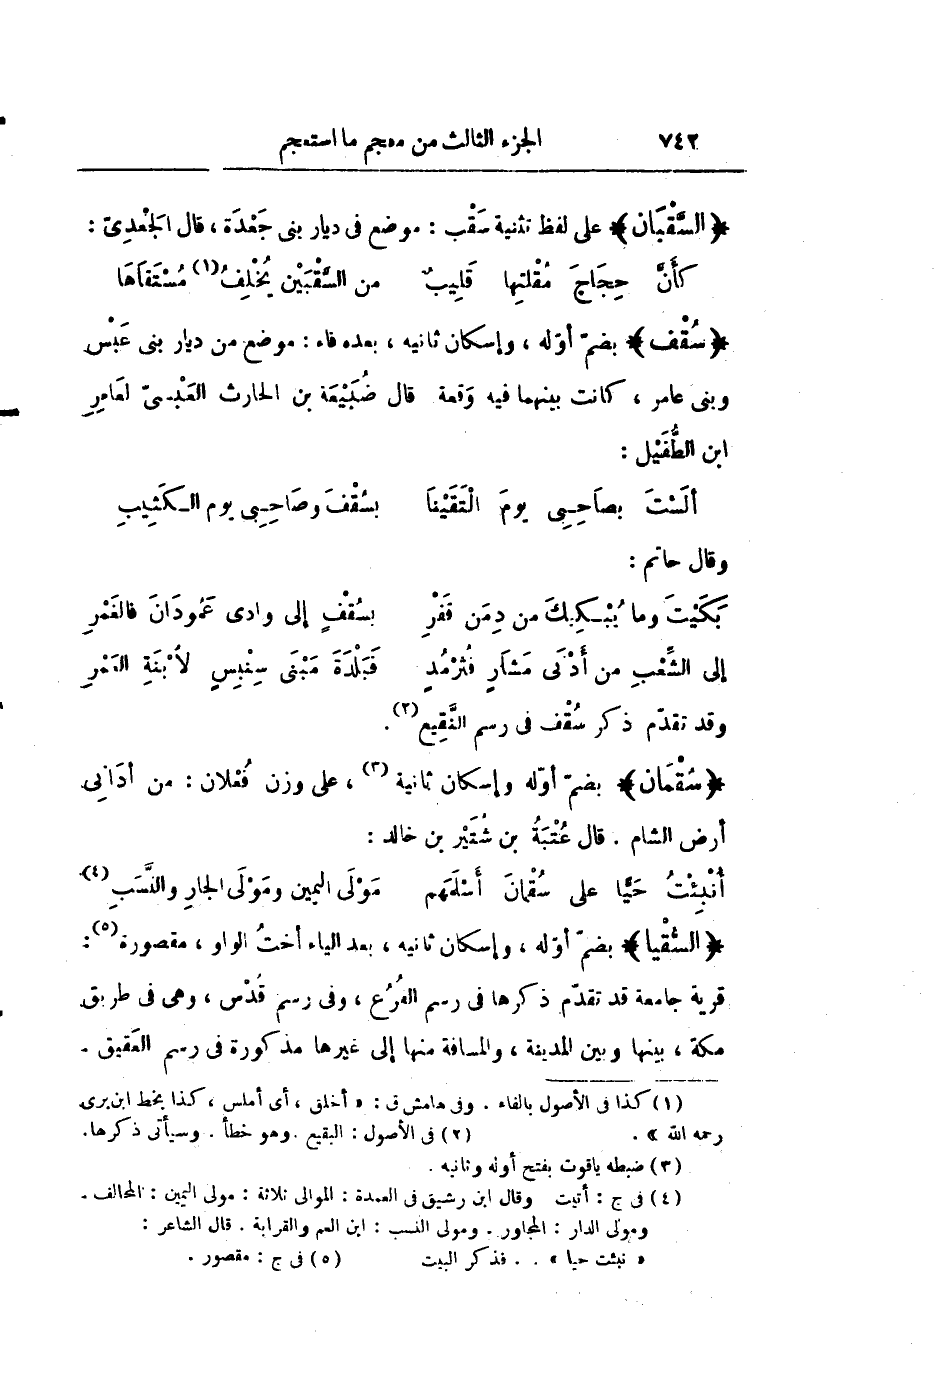 ٧٤٢ الجزء الثالث من معجم ما استعجم
﴿السَّقْبَان﴾ على لفظ تثنية سَقْب : موضع فى ديار بنى جَعْدَة ، قال الجَعْدِىّ :
كأَنَّ حِجَاجَ مُقْلتِها قَلِيبٌ من السَّقْبَيْن يُخْلِفُ(١) مُسْتَقاَهَا
﴿سُقْف﴾ بضمّ أوّله ، وإسكان ثانيه ، بعده فاء : موضع من ديار بنى عَبْس
وبنى عامر ، كانت بينهما فيه وَقعة قال ضُبَيْعَة بن الحارث العَبْسىّ لعَامِرِ
ابن الطُّفَيْل :
ألَسْتَ بصاَحِبِى يومَ الْتَقَيْناَ بسُقْفَ وصَاحِبِى يوم الكَثِيبِ
وقال حاتم :
بَكَيْتَ وما يُبْكِيكَ من دِمَن قَفْرِ بسُقْفٍ إلى وادى عَمُودَانَ فالغَمْرِ
إلى الشِّعْبِ من أَدْنَى مَشَارٍ فَثَرْمُدٍ فَبَلْدَةَ مَبْنَى سِنْبِسٍ لأبْنَةِ الغَمْرِ
وقد تقدّم ذكر سُقْف فى رسم النَّقِيع(٢) .
﴿سُقْمَان﴾ بضمّ أوّله وإسكان ثانية(٣) ، على وزن فُعْلان : من أدَانِى
أرض الشام . قال عُتْبَةُ بن شُتَيْر بن خالد :
أُنْبِئْتُ حَيًّا على سُقْمانَ أَسْلَمَهم مَوْلَى اليمين ومَوْلَى الجارِ والنَّسَبِ(٤)
﴿السُّقْيا﴾ بضمّ أوّله ، وإسكان ثانيه ، بعد الياء أختُ الواو ، مقصورة(٥) :
قرية جامعة قد تقدّم ذكرها فى رسم الفُرُع ، وفى رسم قُدْس ، وهى فى طريق
مكة ، بينها وبين المدينة ، والمسافة منها إلى غيرها مذكورة فى رسم العَقيق .
(١) كذا فى الأصول بالفاء . وفى هامش ق : « أخلق ، أى أملس ، كذا بخط ابن برى
رحمه الله » . (٢) فى الأصول : البقيع . وهو خطأ . وسيأتى ذكرها .
(٣) ضبطه ياقوت بفتح أوله وثانيه .
(٤) فى ج : أتيت وقال ابن رشيق فى العمدة : الموالى ثلاثة : مولى اليمين : المحالف .
ومولى الدار : المجاور . ومولى النسب : ابن العم والقرابة . قال الشاعر :
« نبئت حيا » . . فذكر البيت (٥) فى ج : مقصور .